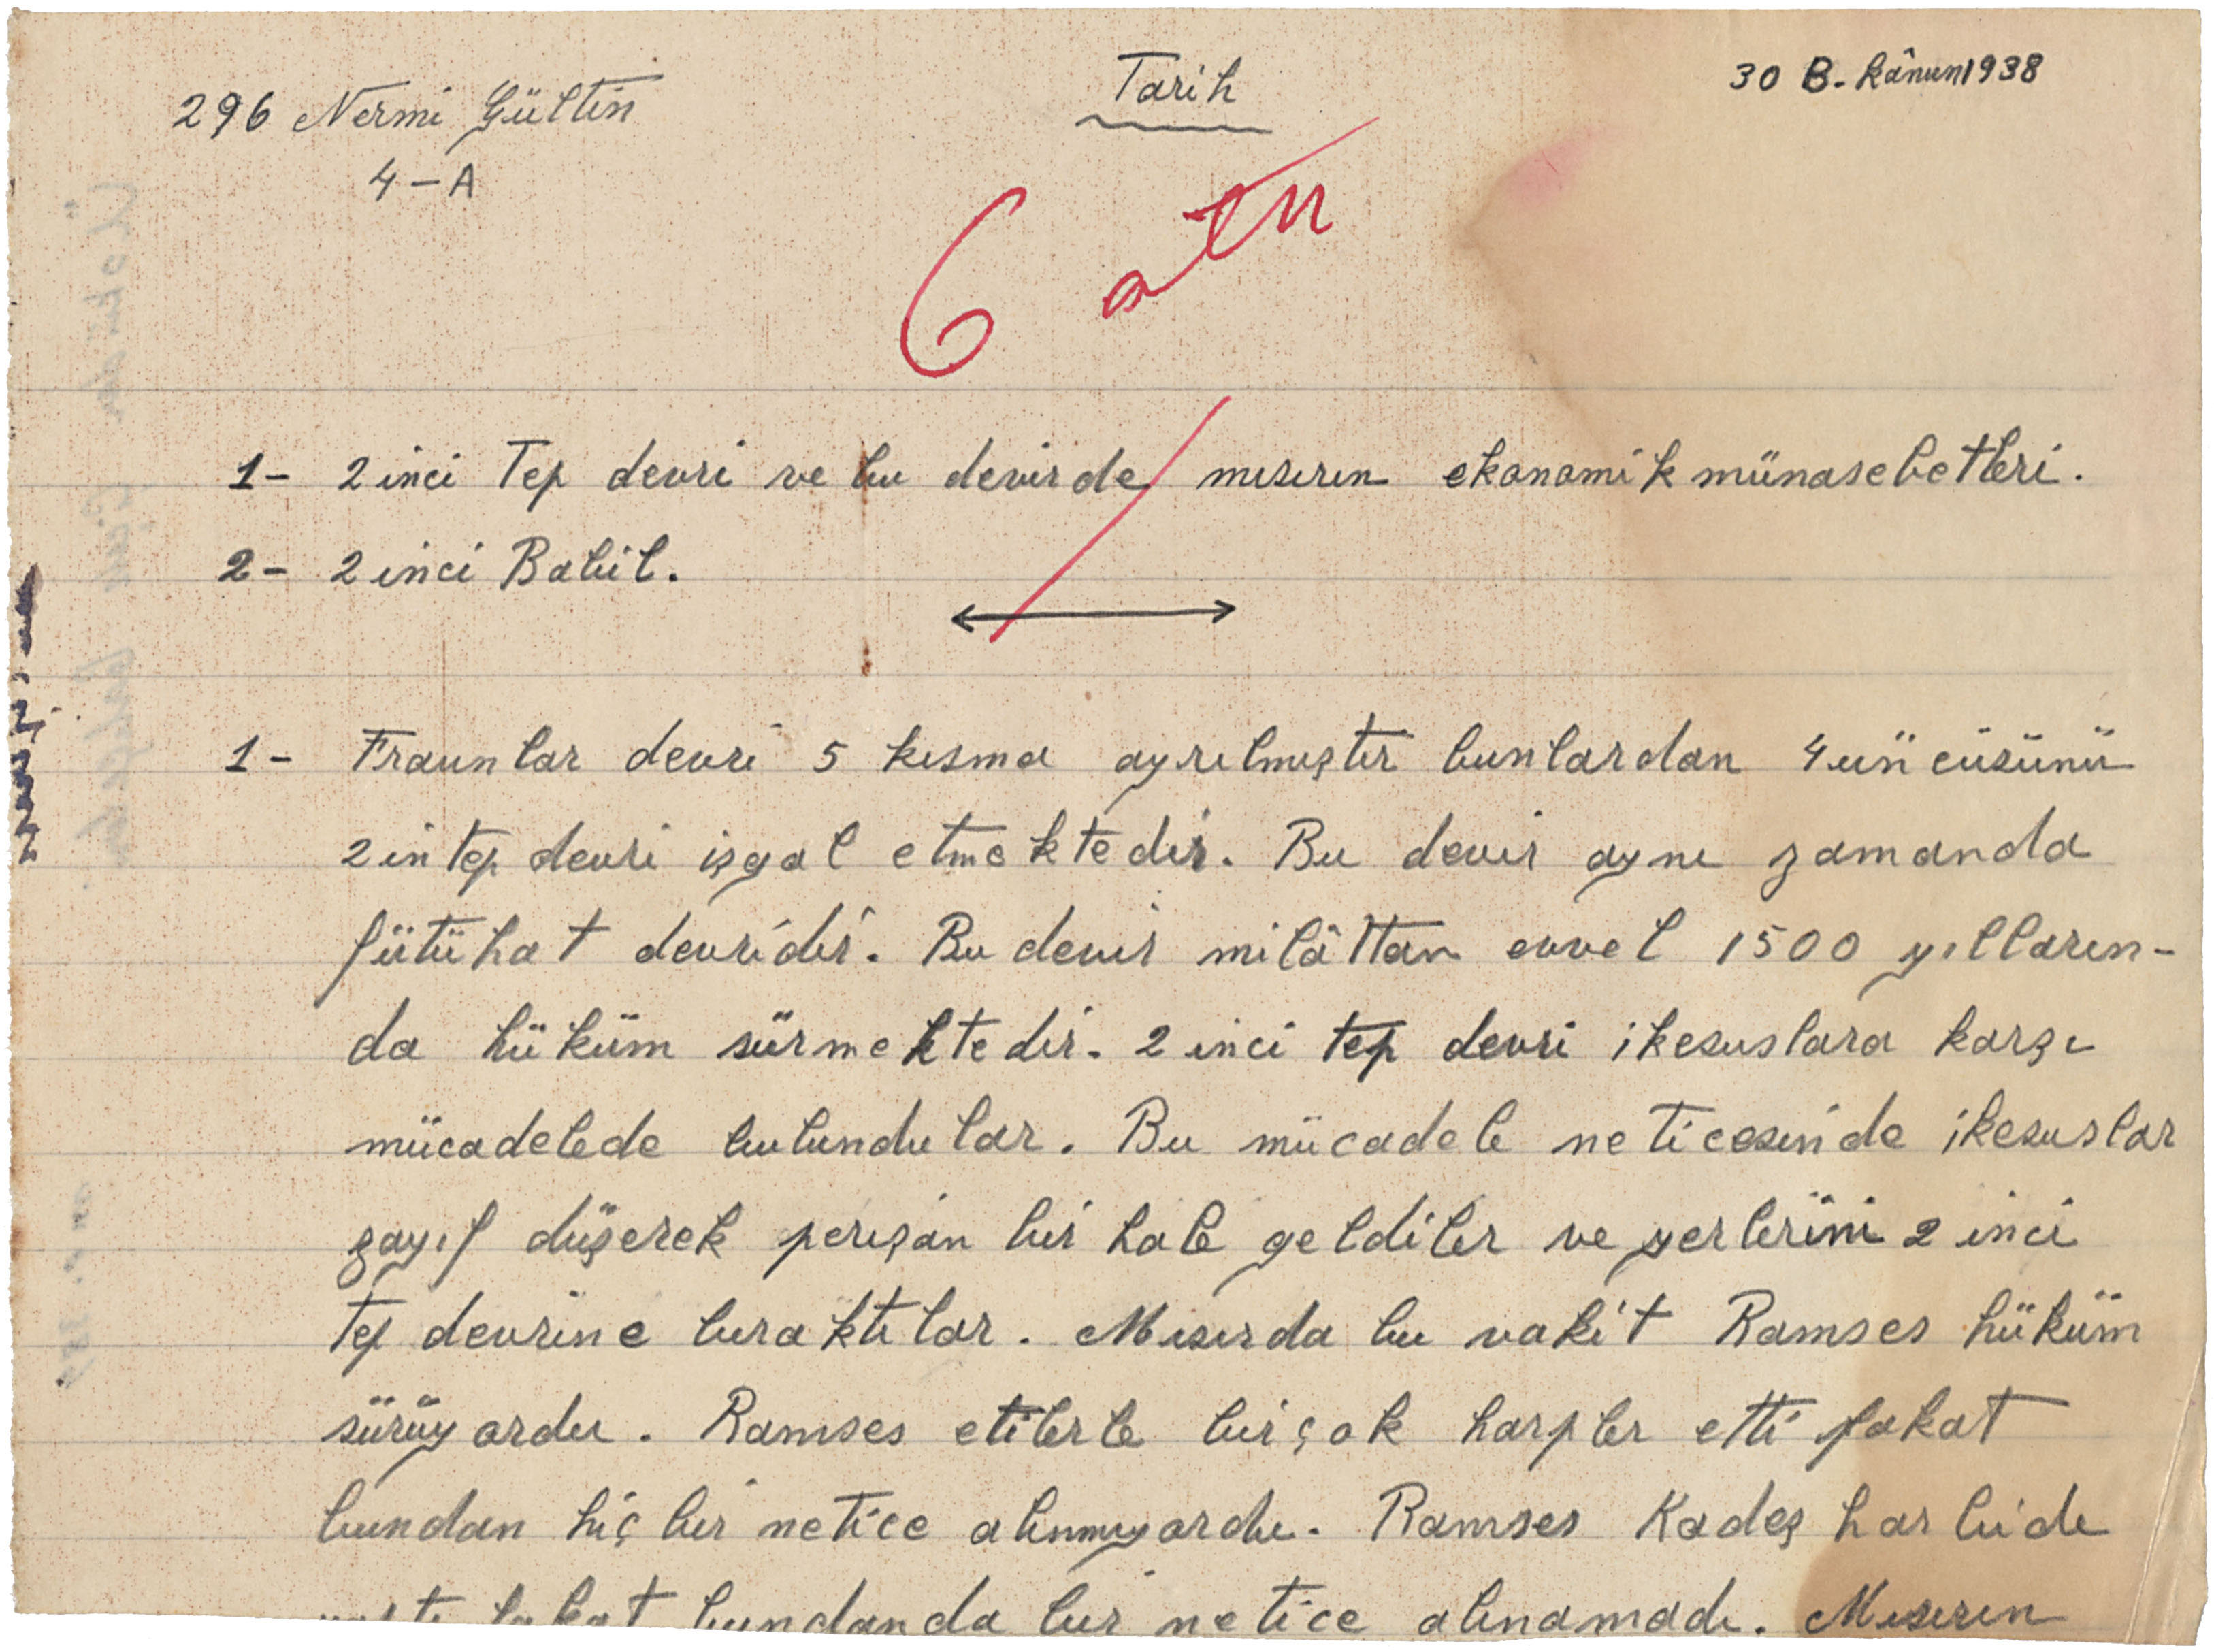 296 Nermi Gültin
4-A
Tarih
30 B. kânun 1938
6 altı
1- 2 inci Tep devri ve bu devirde mısırın ekonomik münasebetleri.
2- 2 inci Babil.
1- Fraunlar devri 5 kısma ayrılmıştır bunlardan 4üncüsünü
2in tep devri işgal etmektedir. Bu devir aynı zamanda
fütühat devridir. Bu devir milâttan evvel 1500 yılların-
da hüküm sürmektedir. 2 inci tep devri ikesuslara karşı
mücadelede bulundular. Bu mücadele neticesinde ikesuslar
zayıf düşerek perişan bir hale geldiler ve yerlerini 2 inci
tep devrine bıraktılar. Mısırda bu vakit Ramses hüküm
sürüyordu. Ramses etilerle birçok harpler etti fakat
bundan hiç bir netice alınmıyordu. Ramses Kadeş harbide
fakat bundanda bir netice alınamadı. Mısırın